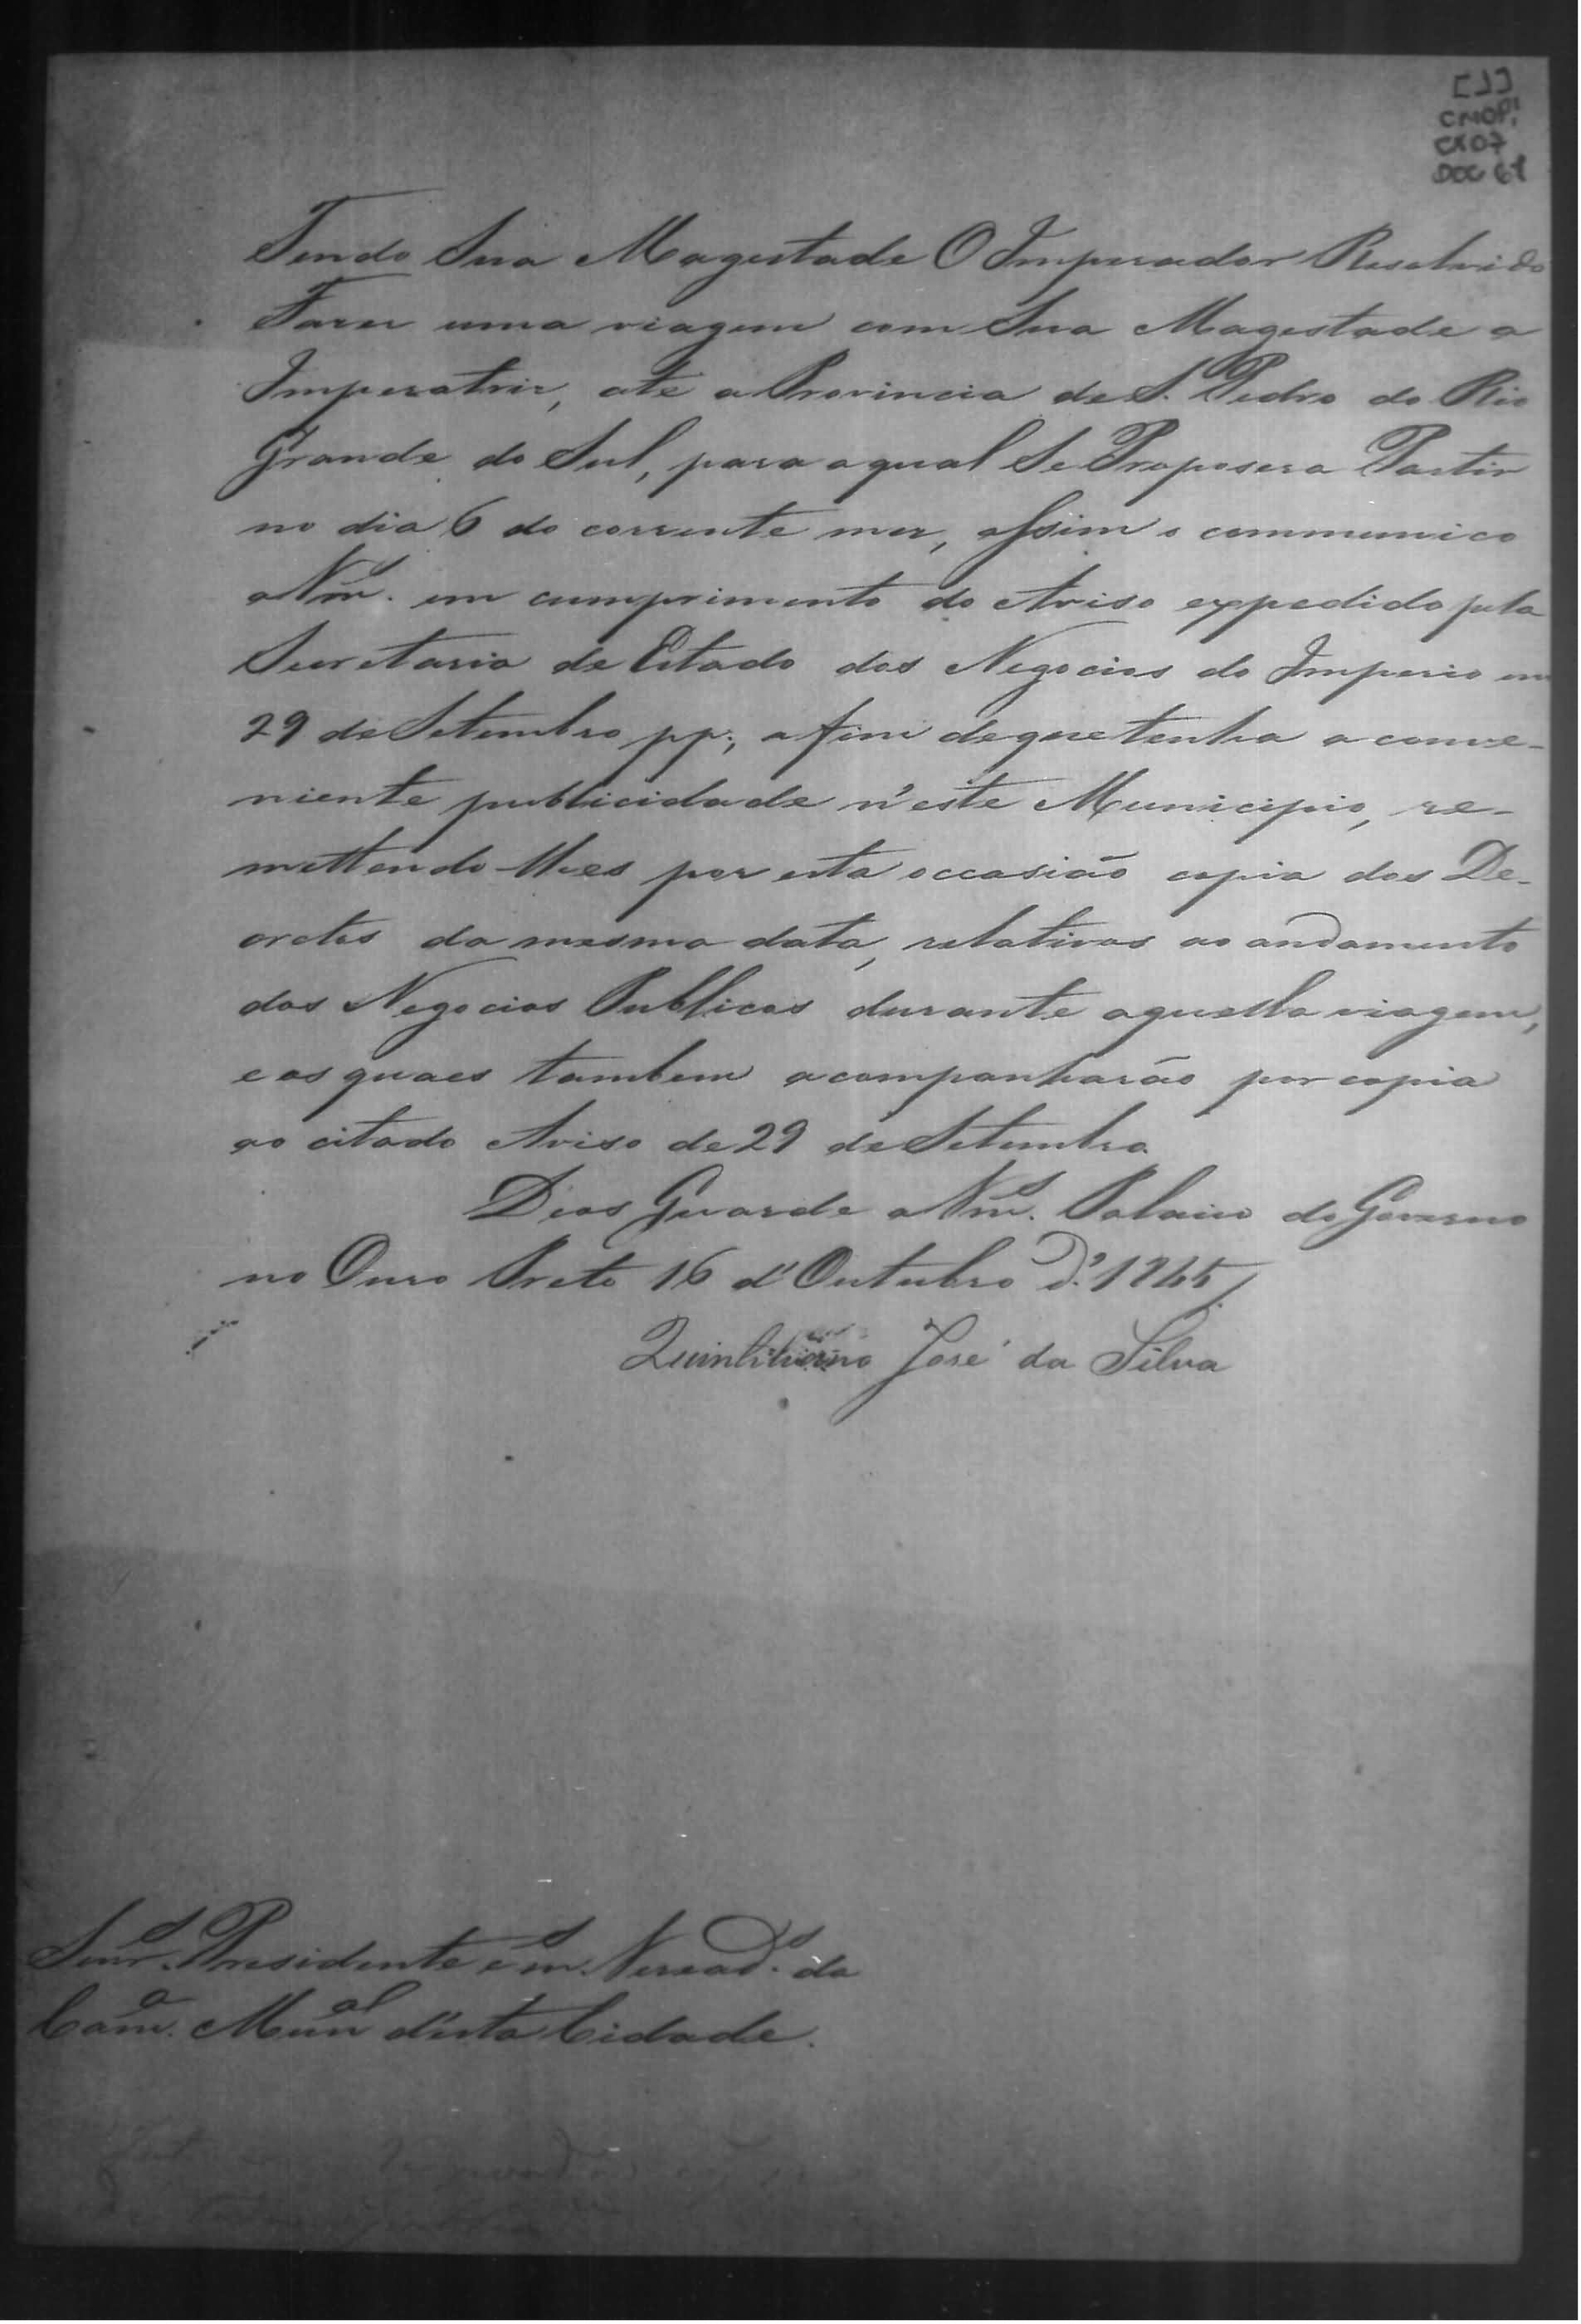 [1]
CMOP
CX07
DOC 61
Tendo Sua Magestade O Imperador Resolvido
Fazer uma viagem com Sua Magestade a
Imperatriz, até a Provincia de S. Pedro do Rio
Grande do Sul, para a qual Se Proposera Partir
no dia 6 do corrente mez, assim o communico
a Vm.ces em cumprimento do Aviso expedido pela
Secretaria de Estado dos Negocios do Imperio em
29 de Setembro pp., a fim de que tenha a conve-
niente publicidade n'este Municipio, re-
mettendo-lhes por esta occasião copia dos De-
cretos da mesma data, relativos ao andamento
dos Negocios Publicos durante aquella viagem,
e os quaes tambem acompanharão por copia
ao citado Aviso de 29 de Setembro
Deos Guarde a Vm.ces Palacio do Governo
no Ouro Preto 16 d'Outubro d'1845
Quintiliano José da Silva
Senr.s Presidente e m. Veread.s da
Cam.a Mun.al d'esta Cidade.